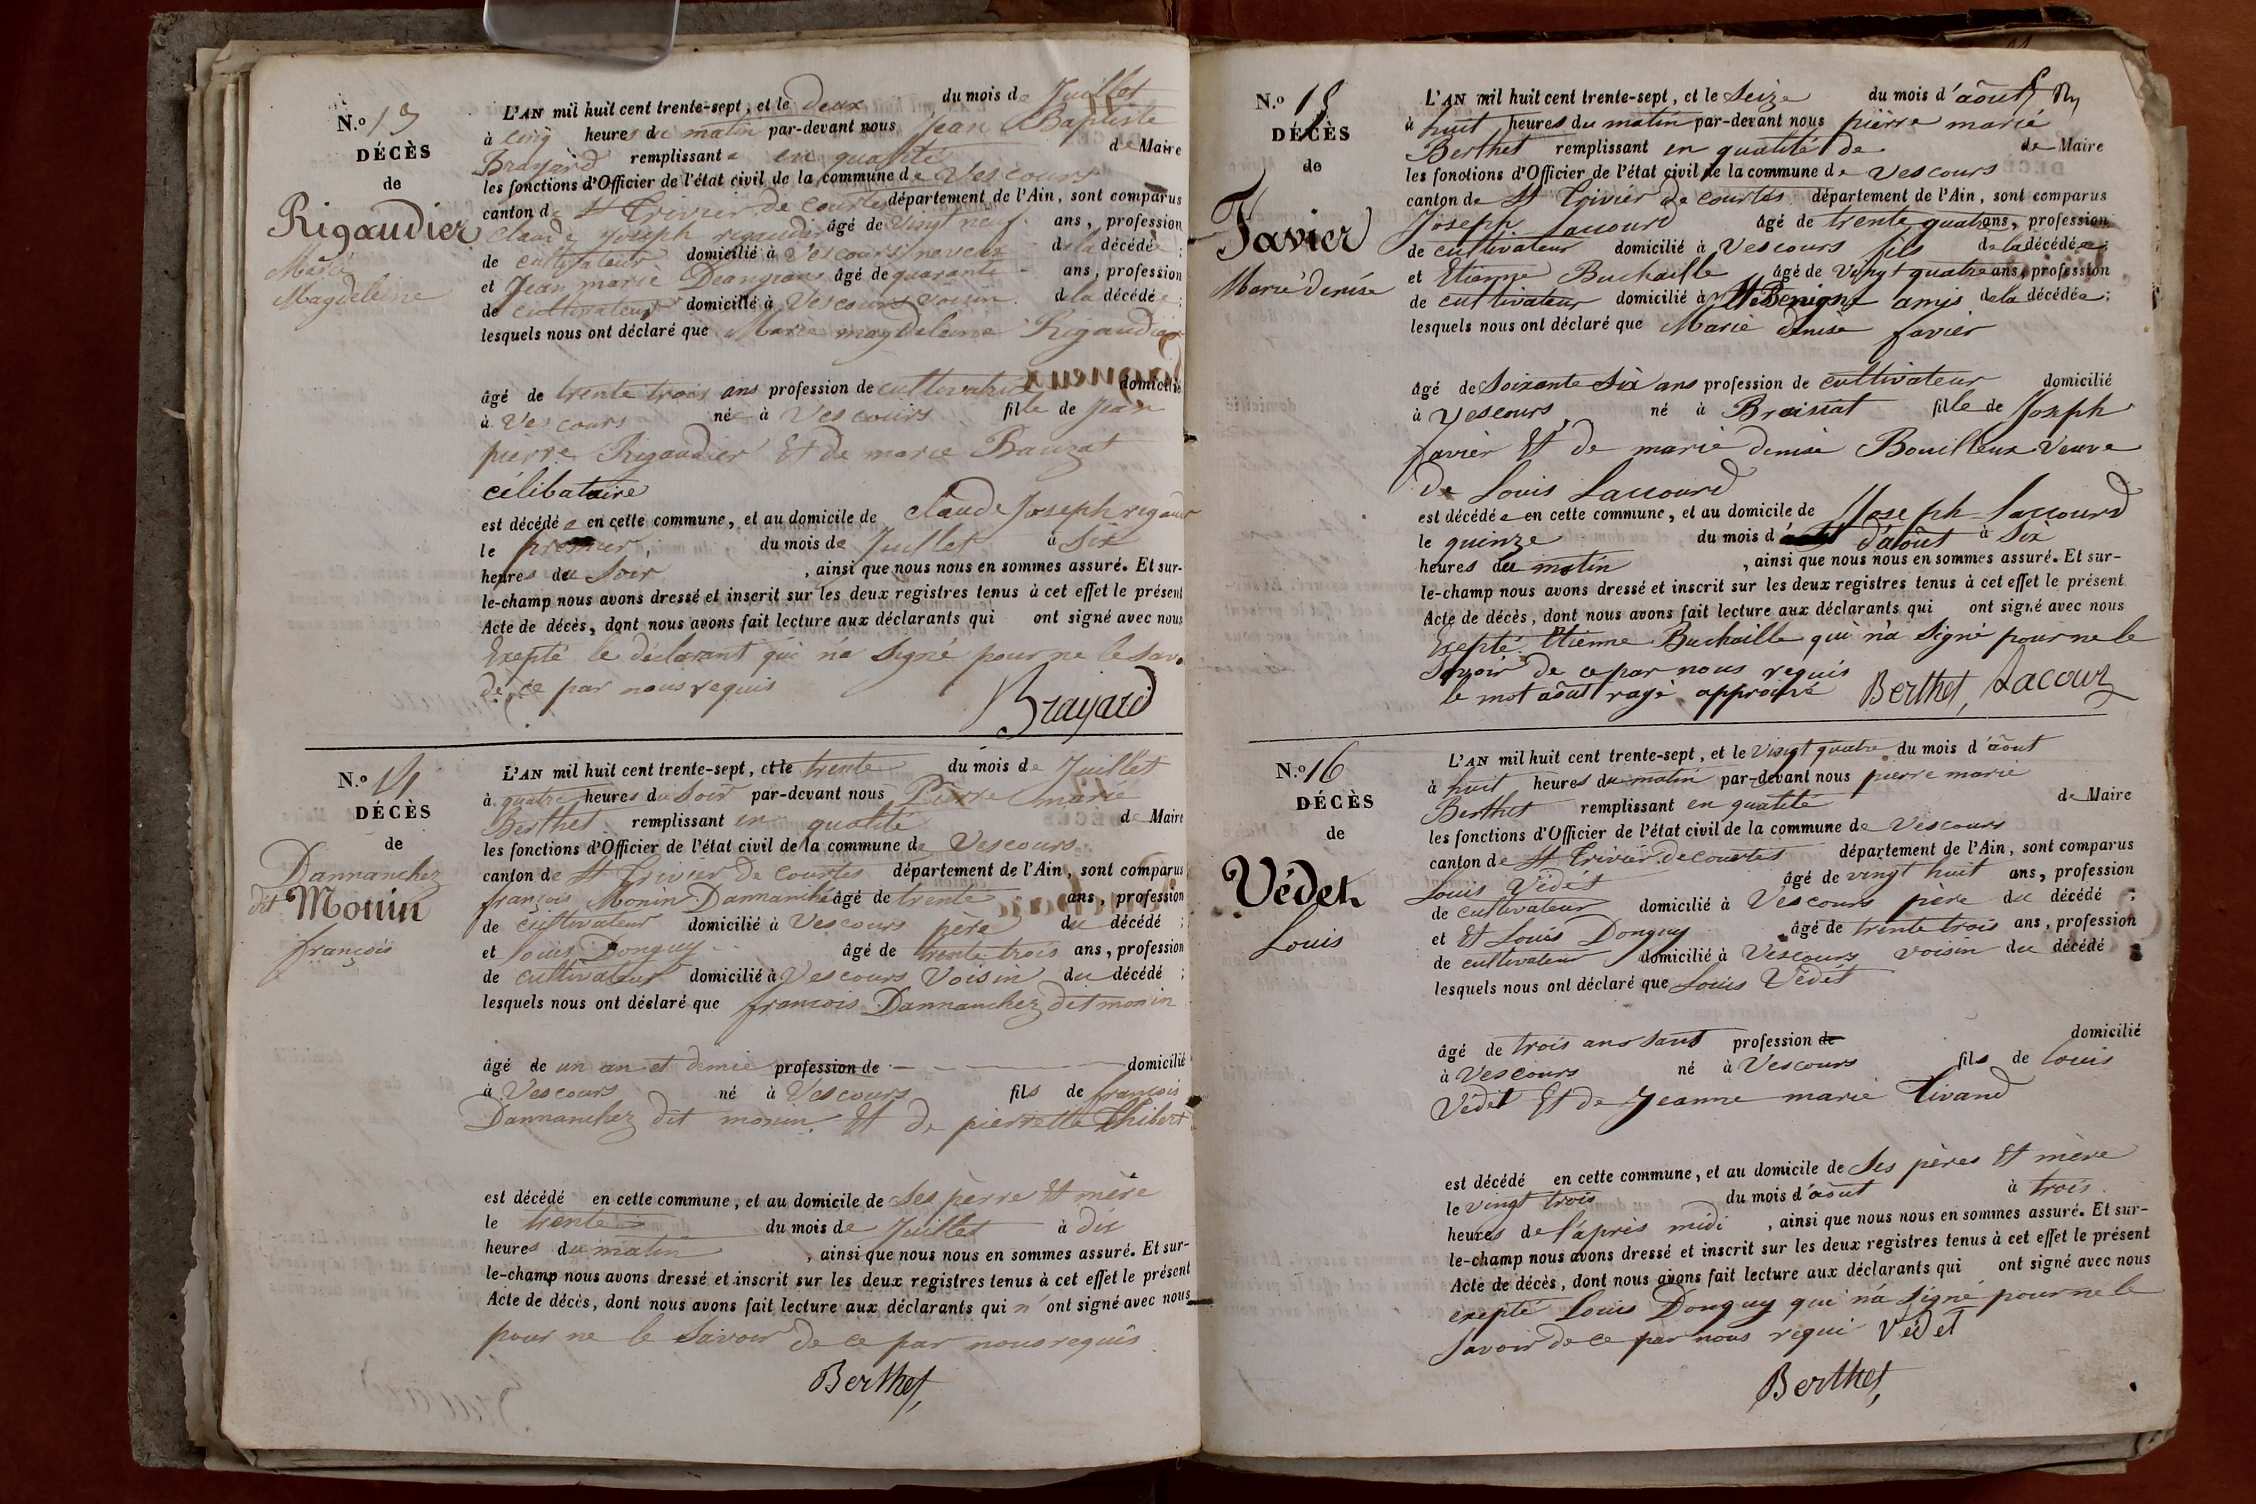 N.o 13
DÉCÈS
de
Rigaudier
Marie
Magdeleine
L'AN mil huit cent trente-sept, et le deux du mois de Juillet
à cinq heures du matin par-devant nous Jean Baptiste
Brayard remplissant en qualité de Maire
les fonctions d'Officier de l'état civil de la commune de Vescours
canton de St Trivier de Courtes département de l'Ain, sont comparus
Claude Joseph rigaudier âgé de vingt neuf ans, profession
de cultivateur domicilié à Vescours neveux de la décédée ;
et Jean marie âgé de quarante ans, profession
de cultivateur domicilié à Vescours voisin de la décédée ;
lesquels nous ont déclaré que Marie magdeleine Rigaudier
âgé de trente trois ans profession de cultivatrice domicilié
à Vescours née à Vescours fille de Jean
pierre Rigaudier Et de marie Bauzat
célibataire
est décédée en cette commune, et au domicile de claude Joseph rigaud
le premier du mois de Juillet à Six
heures du Soir , ainsi que nous nous en sommes assuré. Et sur-
le-champ nous avons dressé et inscrit sur les deux registres tenus à cet effet le présent
Acte de décès, dont nous avons fait lecture aux déclarants qui ont signé avec nous
Exepté le déclarant qui na Signé pour ne le savo
de ce par nous requis
Brayard
N.o 14
DÉCÈS
de
Dannanchez
dit Monin
françois
L'AN mil huit cent trente-sept, et le trente du mois de Juillet
à quatre heures du Soir par-devant nous Pierre marie
Berthet remplissant en qualité de Maire
les fonctions d'Officier de l'état civil de la commune de Vescours
canton de St Trivier de Courtes département de l'Ain, sont comparus
françois Monin Dannanché âgé de trente ans, profession
de cultivateur domicilié à Vescours père du décédé ;
et Louis Donguy âgé de trente trois ans, profession
de cultivateur domicilié à Vescours Voisin du décédé ;
lesquels nous ont déclaré que francois Dannanchez dit monin
âgé de un an et demie profession de domicilié
à Vescours né à Vescours fils de françois
Dannanchez dit monin Et de pierrette Thibert
est décédé en cette commune, et au domicile de Ses perre Et mère
le trente du mois de Juillet à dix
heures du matin , ainsi que nous nous en sommes assuré. Et sur-
le-champ nous avons dressé et inscrit sur les deux registres tenus à cet effet le présent
Acte de décès, dont nous avons fait lecture aux déclarants qui n' ont signé avec nous
pour ne le Savoir de ce par nous requis
Berthet,
N.o 15
DÉCÈS
de
Favier
Marie denise
L'AN mil huit cent trente-sept, et le Seize du mois d'août
à huit heures du matin par-devant nous pierre marie
Berthet remplissant en qualité de de Maire
les fonctions d'Officier de l'état civil de la commune de Vescours
canton de St Trivier de courtes département de l'Ain, sont comparus
Joseph Laccourd âgé de trente quatre ans, profession
de cultivateur domicilié à Vescours fils de la décédée ;
et Etienne Buchaille âgé de vingt quatre ans, profession
de cultivateur domicilié à St Benigne amis de la décédée ;
lesquels nous ont déclaré que Marie denise favier
âgé de Soixante Six ans profession de cultivateur domicilié
à Vescours né à Broissat fille de Joseph
favier Et de marie denise Bouilleux Veuve
De Louis Laccourd
est décédée en cette commune, et au domicile de Joseph Laccourd
le quinze du mois d' d'août à Six
heures du matin , ainsi que nous nous en sommes assuré. Et sur-
le-champ nous avons dressé et inscrit sur les deux registres tenus à cet effet le présent
Acte de décès, dont nous avons fait lecture aux déclarants qui ont signé avec nous
Exepté Etienne Buchaille qui n'a Signé pour ne le
Savoir de ce par nous requis
le mot août rayé approuvé Berthet, Lacour
N.o 16
DÉCÈS
de
Védet
Louis
L'AN mil huit cent trente-sept, et le vingt quatre du mois d'août
à huit heures du matin par-devant nous pierre marie
Berthet remplissant en qualité de Maire
les fonctions d'Officier de l'état civil de la commune de Vescours
canton de St Trivier de courtes département de l'Ain, sont comparus
Louis Védet âgé de vingt huit ans, profession
de cultivateur domicilié à Vescours père du décédé ;
et Et Louis Donguy âgé de trente trois ans, profession
de cultivateur domicilié à Vescours voisin du décédé
lesquels nous ont déclaré que Louis Védet
âgé de trois ans sans profession de domicilié
à Vescours né à Vescours fils de Louis
Védet Et de Jeanne marie Tivand
est décédé en cette commune, et au domicile de Ses pères Et mère
le vingt trois du mois d'août à trois
heures de l'après midi , ainsi que nous nous en sommes assuré. Et sur-
le-champ nous avons dressé et inscrit sur les deux registres tenus à cet effet le présent
Acte de décès, dont nous avons fait lecture aux déclarants qui ont signé avec nous
exepté Louis Donguy qui n'a Signé pour ne le
Savoir de ce par nous requi Védet
Berthet,